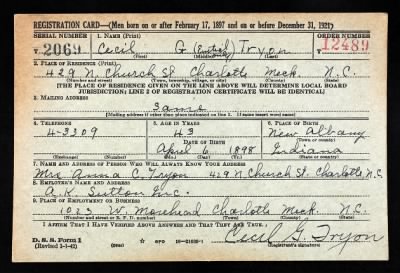 REGISTRATION CARD—(Men born on or after February 17, 1897 and on or before December 31, 1921)
SERIAL NUMBER 1. NAME (Print) ORDER NUMBER
T 2069 Cecil G (initial) Tryon 12489
(First) (Middle) (Last)
2. PLACE OF RESIDENCE (Print)
429 N. Church St. Charlotte Meck. N.C.
(Number and street) (Town, township, village, or city) (County) (State)
[THE PLACE OF RESIDENCE GIVEN ON THE LINE ABOVE WILL DETERMINE LOCAL BOARD
JURISDICTION; LINE 2 OF REGISTRATION CERTIFICATE WILL BE IDENTICAL]
3. MAILING ADDRESS
Same
[Mailing address if other than place indicated on line 2. If same insert word same]
4. TELEPHONE 5. AGE IN YEARS 6. PLACE OF BIRTH
4-3309 43 New Albany
DATE OF BIRTH (Town or county)
April 6 1898 Indiana
(Exchange) (Number) (Mo.) (Day) (Yr.) (State or country)
7. NAME AND ADDRESS OF PERSON WHO WILL ALWAYS KNOW YOUR ADDRESS
Mrs Anna C. Tryon 429 N. Church St. Charlotte N.C.
8. EMPLOYER'S NAME AND ADDRESS
A. K. Sutton Inc.
9. PLACE OF EMPLOYMENT OR BUSINESS
1023 W. Morehead Charlotte Meck. N.C.
(Number and street or R. F. D. number) (Town) (County) (State)
I AFFIRM THAT I HAVE VERIFIED ABOVE ANSWERS AND THAT THEY ARE TRUE.
D. S. S. Form 1 Cecil G. Tryon
(Revised 1-1-42) (over) GPO 16-21630-1 (Registrant's signature)